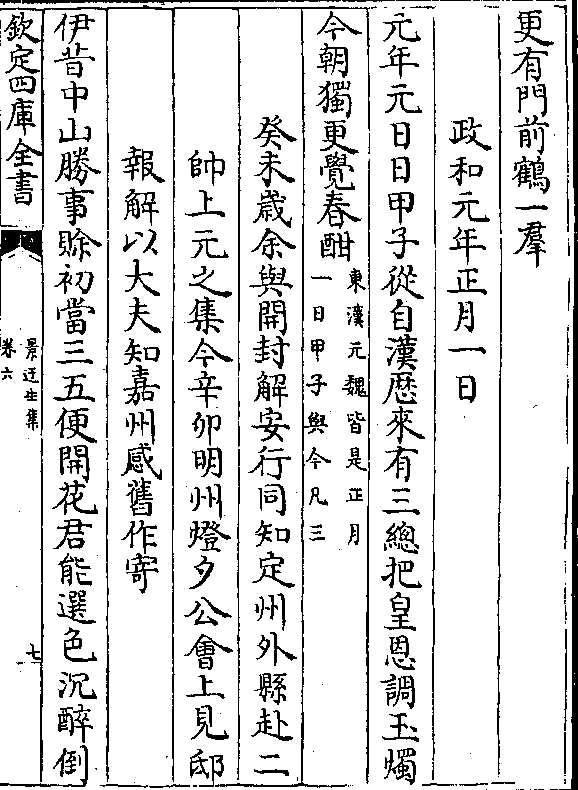 更有門前鶴一羣
政和元年正月一日
元年元日日甲子從自漢厯來有三總把皇恩調玉燭
今朝獨更覺春酣
東漢元魏皆是正月
一日甲子與今凡三
癸未歳余與開封解安行同知定州外縣赴二
帥上元之集今辛卯明州燈夕公㑹上見邸
報解以大夫知嘉州感舊作寄
伊昔中山勝事賖初當三五便開花君能選色沉醉倒
欽定四庫全書
景迂生集
卷六
七